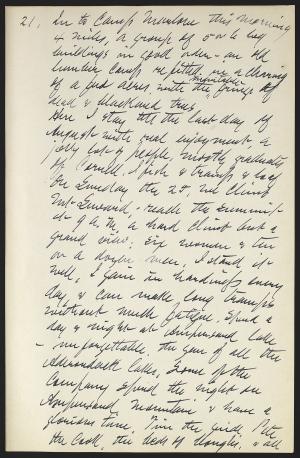 21. In to Camp Meunlove this morning
4 miles, a group of 5 or 6 log
buildings in good order - an old
hunting camp refitted, in a clearing
of a few acres, with the inevitable fringe of
dead & blackened trees.
Here I stay till the last day of
August with real enjoyment, a
jolly lot of people, mostly graduates
of Cornell. I fish & tramp & loaf
On Sunday the 28, we climb
Mt. Seward, - reach the summit
at 9 A.M. a hard climb but a
grand view; six women & ten
or a dozen men, I stand it
well, I gain in hardiness every
day, & can make long tramps
without much fatigue. Spend a
day & night at Ampersand Lake
- unforgettable, the gem of all the
Adirondack Lakes, Some of the
Company spend the night on
Ampersand Mountain & have a
glorious time. the guide, Pete
the Cook, the beds of boughs, & all